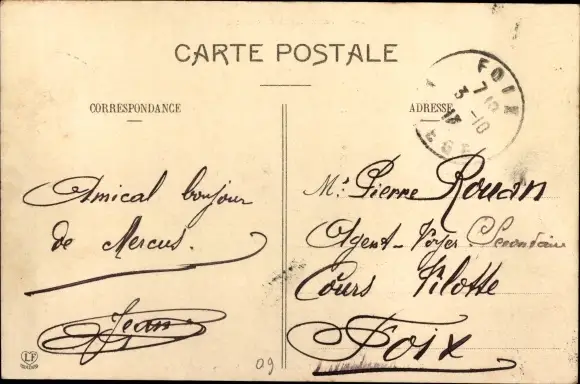 CARTE POSTALE
CORRESPONDANCE
ADRESSE
FOIX
7
3 -10
Amical bonjour
de Mercus.
Jean
Mr Pierre Rouan
Agent-Voyer Secondaire
Cours Vilotte
Foix
09
LF